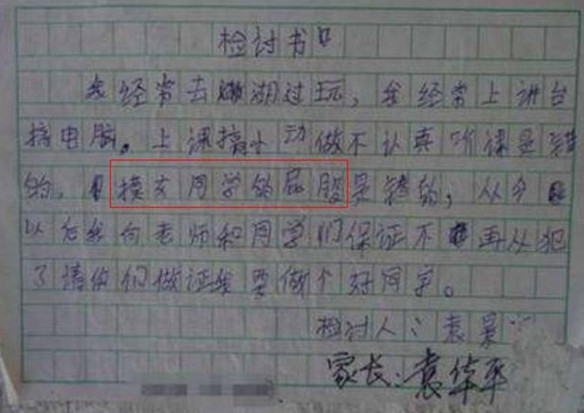 检讨书
我经常去湖过玩,我经常上讲台
搞电脑。上课搞小动做不认真听课是错
的。摸女同学的屁股是错的,从今
以后我向老师和同学们保证不再从犯
了请你们做证我要做个好同学。
检讨人:袁景
家长:袁华平